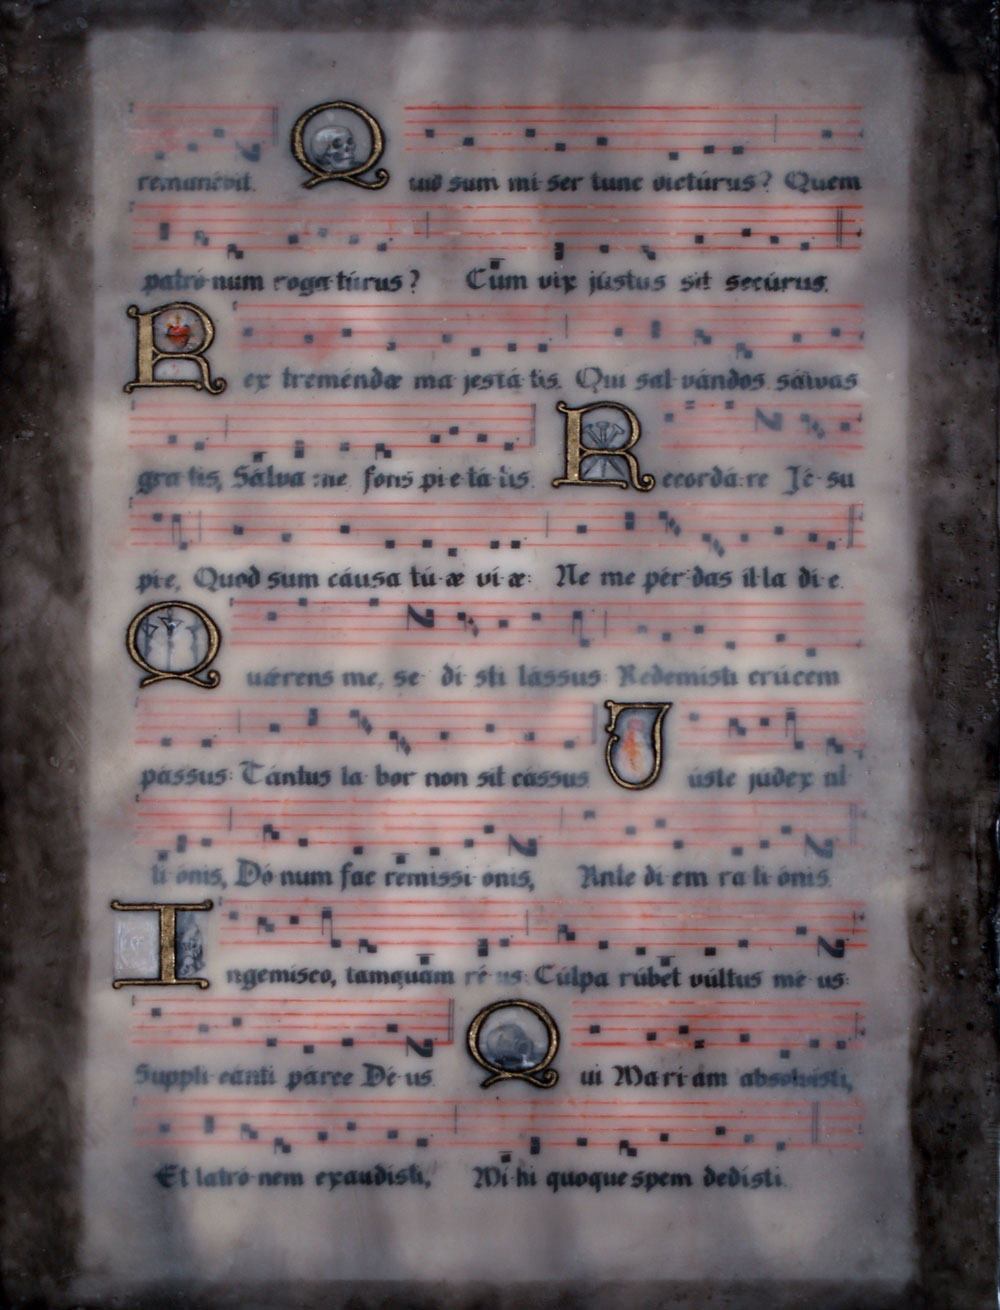 remanébit. Quid sum mi-ser tunc dictúrus? Quem
patró-num roga-túrus? Cum vix jústus sit secúrus.
Rex treméndæ ma-jestá-tis. Qui sal-vándos sálvas
gra-tis, Sálva me fons pi-e-tá-tis. Recordá-re Jé-su
pie, Quod sum cáusa tú-æ ví-æ: Ne me pér-das il-la di-e.
Quǽrens me, se-di-sti lássus: Redemisti crúcem
pássus: Tántus la-bor non sit cássus. Júste judex ul
ti-ónis, Dó-num fac remissi-ónis, Ante di-em ra-ti-ónis.
Ingemisco, tamquam ré-us: Cúlpa rúbet vúltus mé-us:
Suppli-cánti párce Dé-us. Qui Marí-am absolvisti,
Et latró-nem exaudisti, Mi-hi quoque spem dedisti.